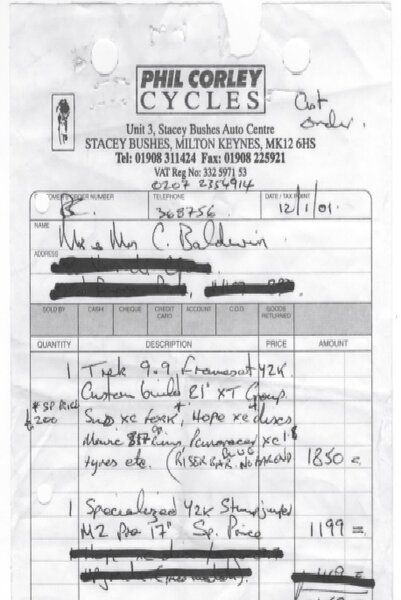 PHIL CORLEY
CYCLES
Cust
order.
Unit 3, Stacey Bushes Auto Centre
STACEY BUSHES, MILTON KEYNES, MK12 6HS
Tel: 01908 311424 Fax: 01908 225921
VAT Reg No: 332 5971 53
0207 2354914
CUSTOMER ORDER NUMBER TELEPHONE DATE / TAX POINT
368756 12/1/01.
NAME Mr & Mrs C. Baldwin
ADDRESS
SOLD BY CASH CHEQUE CREDIT CARD ACCOUNT C.O.D. GOODS RETURNED
QUANTITY DESCRIPTION PRICE AMOUNT
1 Trek 9.9 Frameset Y2K
Custom build 21" XT Group
* SP PRICE Sub XC fork, Hope XC discs
£200 Mavic 517 rims, Panaracer XC 1.8
tyres etc. (RISER BAR. NO BAR END 1850 =
1 Specialized Y2K Stumpjumper
M2 Pro 17" Sp. Price 1199 =